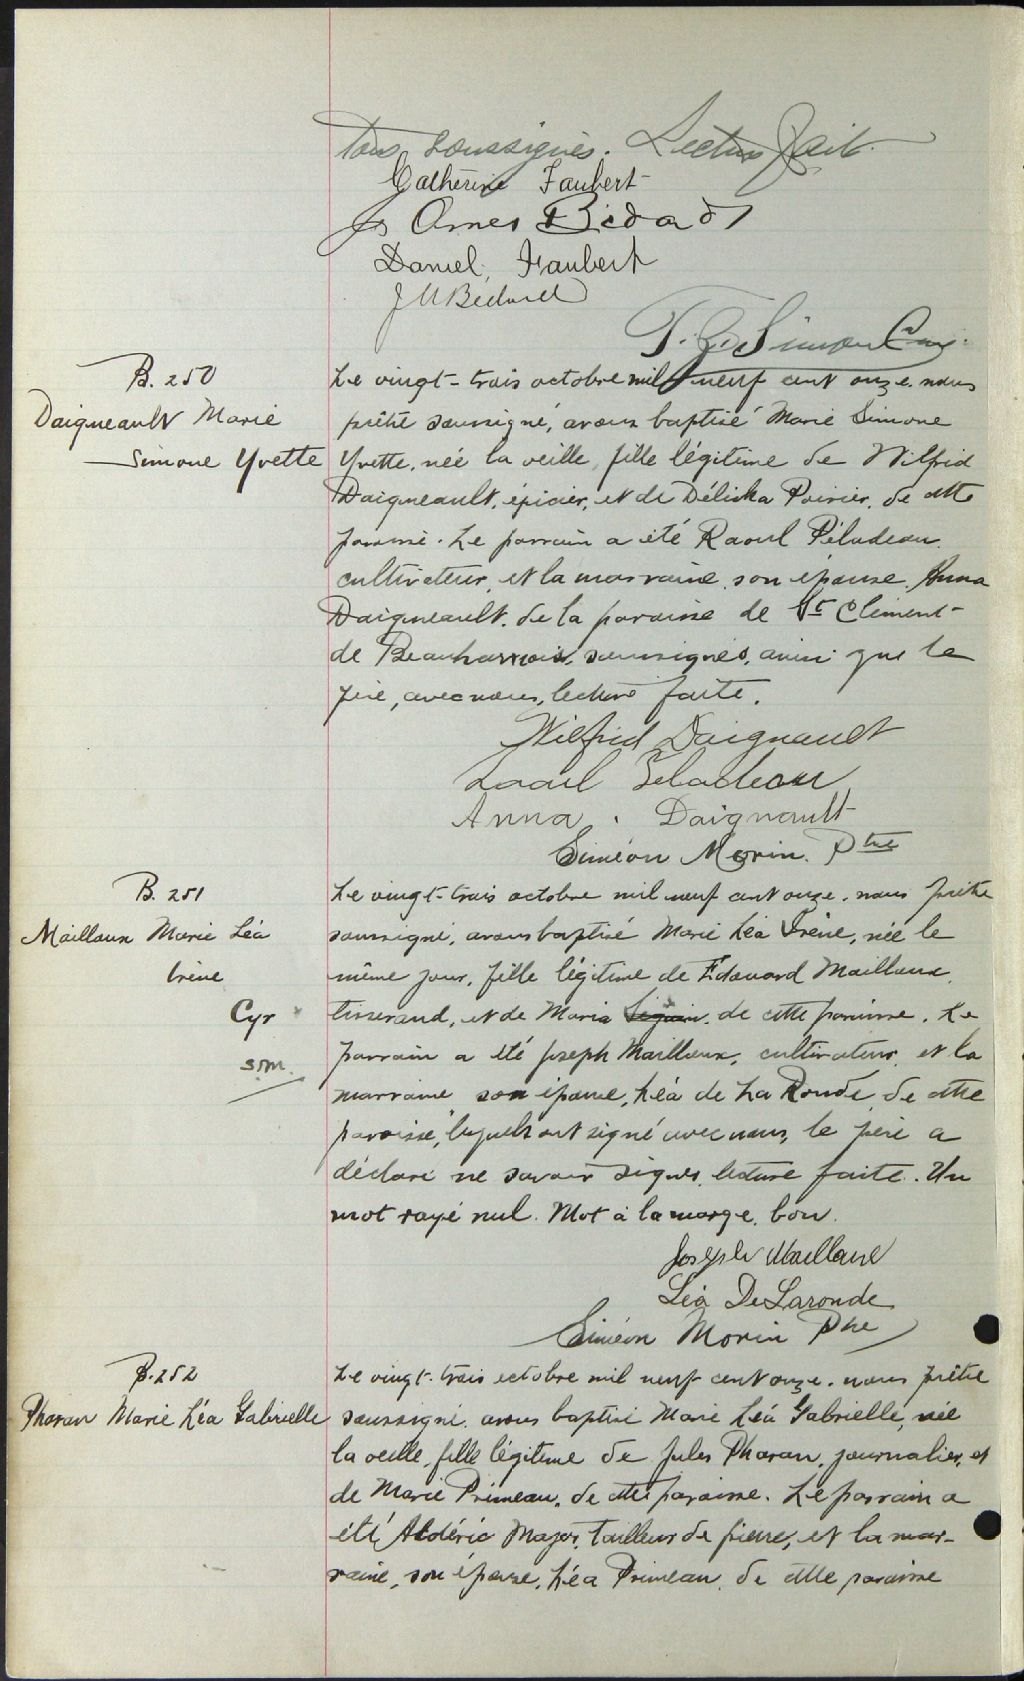 tous soussignés. Lecture faite.
Catherine Faubert
Js Omer Bédard
Daniel Faubert
J M Bédard
T. G. Simon Curé
B. 250
Daigneault Marie
Simone Yvette
Le vingt-trois octobre mil neuf cent onze, nous
prêtre soussigné, avons baptisé Marie Simone
Yvette, née la veille, fille légitime de Wilfrid
Daigneault, épicier, et de Déliska Poirier, de cette
paroisse. Le parrain a été Raoul Péladeau,
cultivateur, et la marraine, son épouse, Anna
Daigneault, de la paroisse de St Clément
de Beauharnois, soussignés, ainsi que le
père, avec nous, lecture faite.
Wilfrid Daignault
Raoul Peladeau
Anna Daignault
Siméon Morin. Ptre
B. 251
Mailloux Marie Léa
Irène
Cyr
s.m.
Le vingt-trois octobre mil neuf cent onze, nous prêtre
soussigné, avons baptisé Marie Léa Irène, née le
même jour, fille légitime de Édouard Mailloux,
tisserand, et de Maria Séguin, de cette paroisse. Le
parrain a été Joseph Mailloux, cultivateur, et la
marraine son épouse, Léa de La Ronde, de cette
paroisse, lesquels ont signé avec nous, le père a
déclaré ne savoir signer, lecture faite. Un
mot rayé nul. Mot à la marge, bon.
Joseph Mailloux
Léa DeLaronde
Siméon Morin Ptre
B. 252
Pharan Marie Léa Gabrielle
Le vingt-trois octobre mil neuf cent onze, nous prêtre
soussigné, avons baptisé Marie Léa Gabrielle, née
la veille, fille légitime de Jules Pharan, journalier, et
de Marie Primeau, de cette paroisse. Le parrain a
été Aldéric Major, tailleur de pierre, et la mar-
raine, son épouse, Léa Primeau, de cette paroisse